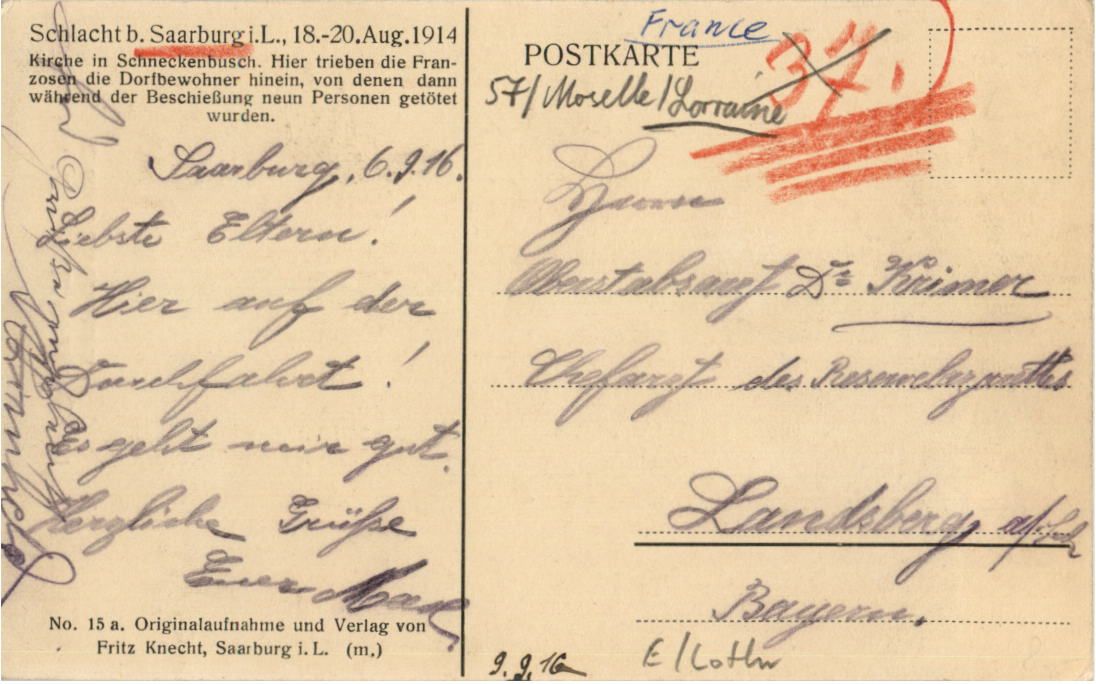 Schlacht b. Saarburg i.L., 18.-20.Aug.1914
Kirche in Schneckenbusch. Hier trieben die Fran-
zosen die Dorfbewohner hinein, von denen dann
während der Beschießung neun Personen getötet
wurden.
Saarburg, 6.9.16.
Liebste Eltern!
Hier auf der
Durchfahrt!
Es geht mir gut.
Herzliche Grüße
Euer Max
No. 15 a. Originalaufnahme und Verlag von
Fritz Knecht, Saarburg i. L. (m.)
France
POSTKARTE
37.
57/Moselle/Lorraine
Herrn
Oberstabsarzt Dr Krimer
Chefarzt des Reservelazaretts
Landsberg a/Lech
Bayern.
9.9.16
E/Lothr